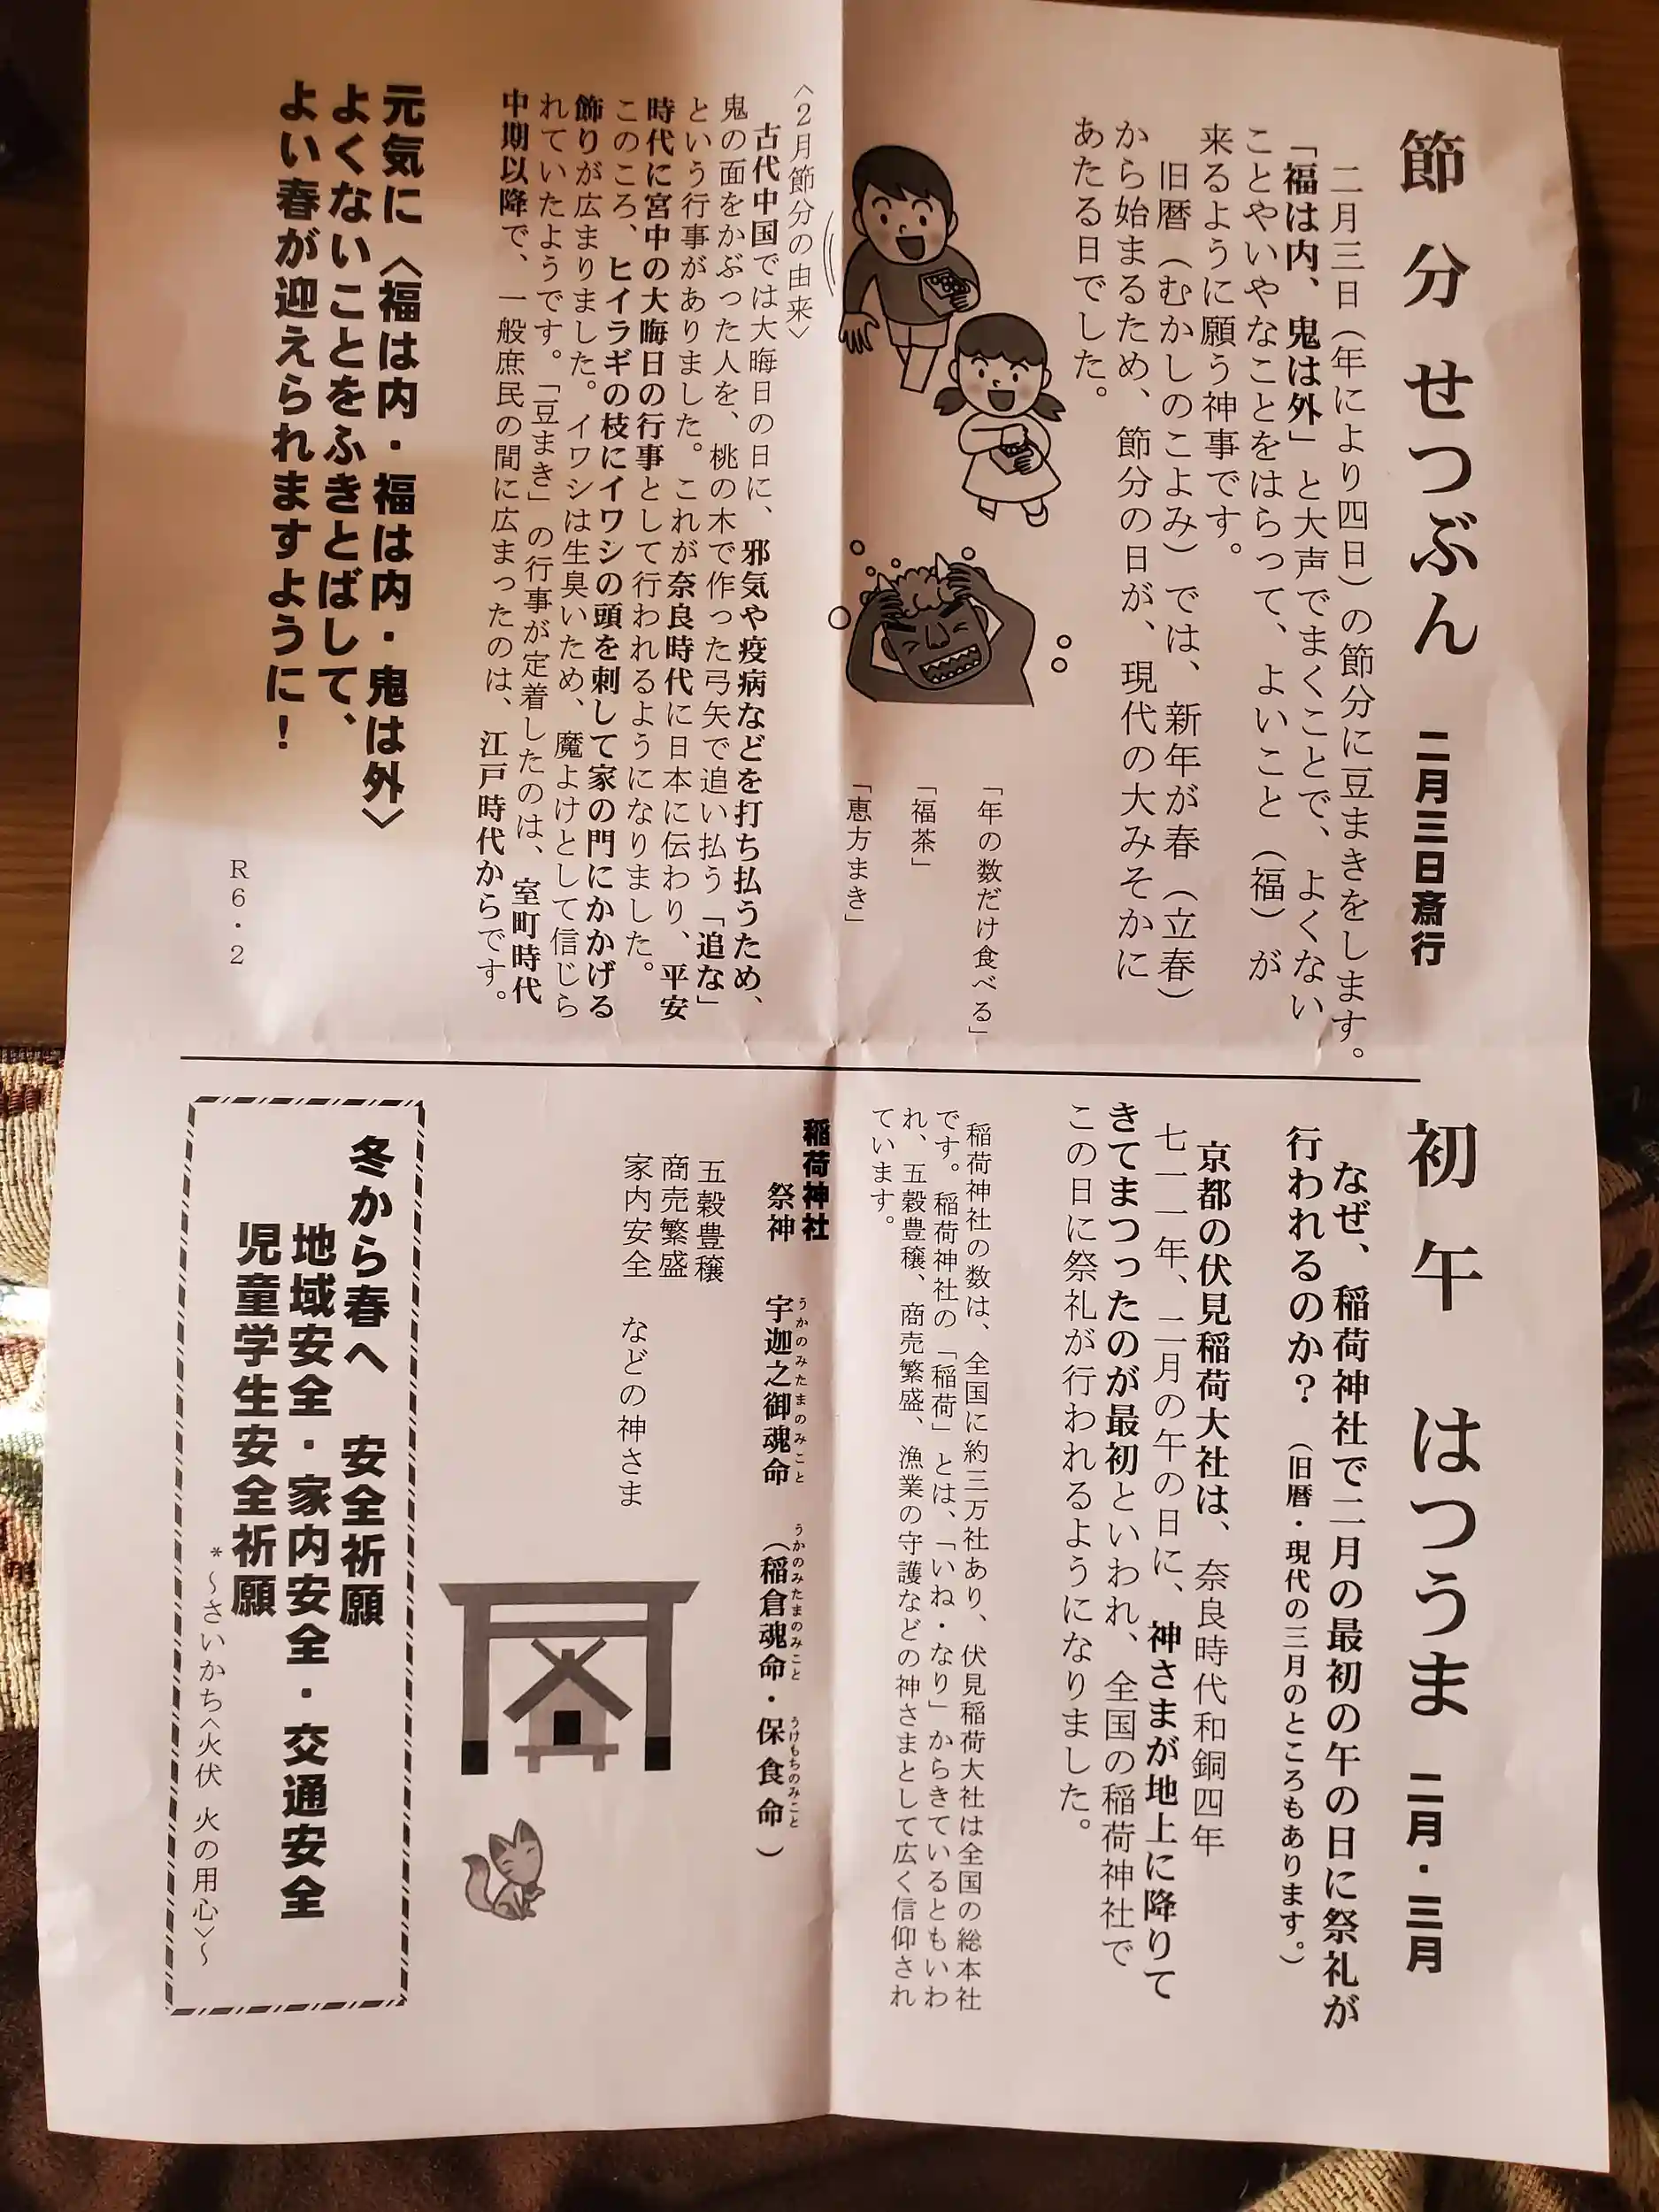 節分 せつぶん 二月三日斎行
二月三日(年により四日)の節分に豆まきをします。
「福は内、鬼は外」と大声でまくことで、よくない
ことやいやなことをはらって、よいこと(福)が
来るように願う神事です。
旧暦(むかしのこよみ)では、新年が春(立春)
から始まるため、節分の日が、現代の大みそかに
あたる日でした。
「年の数だけ食べる」
「福茶」
「恵方まき」
〈2月節分の由来〉
古代中国では大晦日の日に、邪気や疫病などを打ち払うため、
鬼の面をかぶった人を、桃の木で作った弓矢で追い払う「追な」
という行事がありました。これが奈良時代に日本に伝わり、平安
時代に宮中の大晦日の行事として行われるようになりました。
このころ、ヒイラギの枝にイワシの頭を刺して家の門にかかげる
飾りが広まりました。イワシは生臭いため、魔よけとして信じら
れていたようです。「豆まき」の行事が定着したのは、室町時代
中期以降で、一般庶民の間に広まったのは、江戸時代からです。
元気に〈福は内・福は内・鬼は外〉
よくないことをふきとばして、
よい春が迎えられますように!
R6・2
初午 はつうま 二月・三月
なぜ、稲荷神社で二月の最初の午の日に祭礼が
行われるのか?(旧暦・現代の三月のところもあります。)
京都の伏見稲荷大社は、奈良時代和銅四年
七一一年、二月の午の日に、神さまが地上に降りて
きてまつったのが最初といわれ、全国の稲荷神社で
この日に祭礼が行われるようになりました。
稲荷神社の数は、全国に約三万社あり、伏見稲荷大社は全国の総本社
です。稲荷神社の「稲荷」とは、「いね・なり」からきているともいわ
れ、五穀豊穣、商売繁盛、漁業の守護などの神さまとして広く信仰され
ています。
稲荷神社
祭神 宇迦之御魂命 (稲倉魂命・保食命)
うかのみたまのみこと うかのみたまのみこと うけもちのみこと
五穀豊穣
商売繁盛
家内安全 などの神さま
冬から春へ 安全祈願
地域安全・家内安全・交通安全
児童学生安全祈願
*～さいかち〈火伏 火の用心〉～